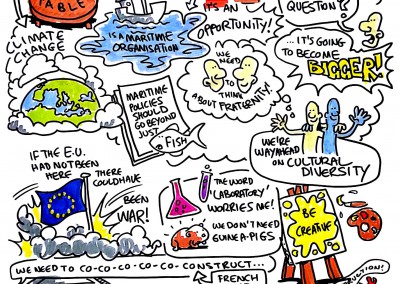 TABLE
CLIMATE
CHANGE
IS A MARITIME
ORGANISATION
IT'S AN
OPPORTUNITY!
QUESTION?
...IT'S GOING
TO BECOME
BIGGER!
WE
NEED
TO
THINK
ABOUT FRATERNITY!
MARITIME
POLICIES
SHOULD
GO BEYOND
JUST
FISH
WE'RE
WAY AHEAD
ON CULTURAL
DIVERSITY
IF THE E.U.
HAD NOT BEEN
HERE
THERE
COULD HAVE
BEEN
WAR!
THE WORD
'LABORATORY'
WORRIES ME!
WE DON'T NEED
GUINEA-PIGS
BE
CREATIVE
WE NEED TO CO-CO-CO-CO-CO-CONSTRUCT...
FRENCH